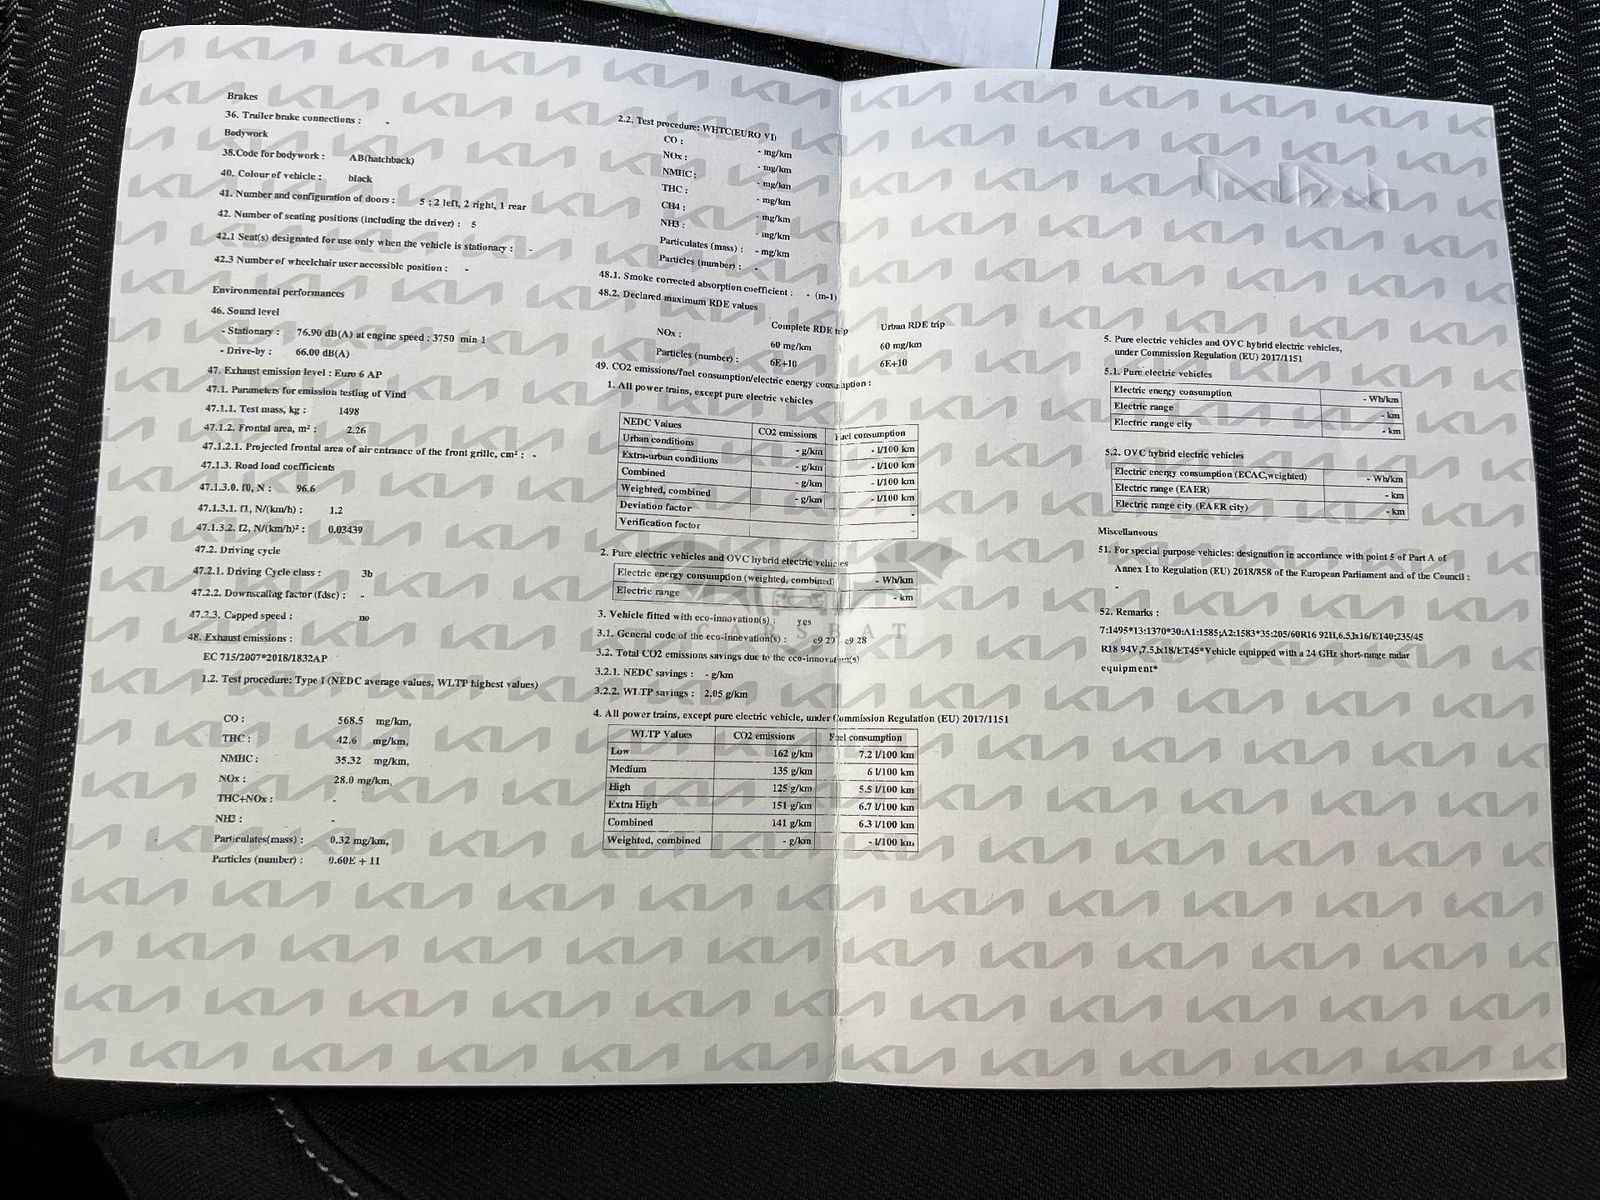 Brakes
36. Trailer brake connections : -
Bodywork
38.Code for bodywork : AB(hatchback)
40. Colour of vehicle : black
41. Number and configuration of doors : 5 ; 2 left, 2 right, 1 rear
42. Number of seating positions (including the driver) : 5
42.1 Seat(s) designated for use only when the vehicle is stationary : -
42.3 Number of wheelchair user accessible position : -
Environmental performances
46. Sound level
- Stationary : 76.90 dB(A) at engine speed : 3750 min-1
- Drive-by : 66.00 dB(A)
47. Exhaust emission level : Euro 6 AP
47.1. Parameters for emission testing of Vind
47.1.1. Test mass, kg : 1498
47.1.2. Frontal area, m² : 2.26
47.1.2.1. Projected frontal area of air entrance of the front grille, cm² : -
47.1.3. Road load coefficients
47.1.3.0. f0, N : 96.6
47.1.3.1. f1, N/(km/h) : 1.2
47.1.3.2. f2, N/(km/h)² : 0.03439
47.2. Driving cycle
47.2.1. Driving Cycle class : 3b
47.2.2. Downscaling factor (fdsc) : -
47.2.3. Capped speed : no
48. Exhaust emissions :
EC 715/2007*2018/1832AP
1.2. Test procedure: Type I (NEDC average values, WLTP highest values)
CO : 568.5 mg/km,
THC : 42.6 mg/km,
NMHC : 35.32 mg/km,
NOx : 28.0 mg/km,
THC+NOx : -
NH3 : -
Particulates(mass) : 0.32 mg/km,
Particles (number) : 0.60E + 11
2.2. Test procedure: WHTC(EURO VI)
CO : - mg/km
NOx : - mg/km
NMHC : - mg/km
THC : - mg/km
CH4 : - mg/km
NH3 : - mg/km
Particulates (mass) : - mg/km
Particles (number) : -
48.1. Smoke corrected absorption coefficient : - (m-1)
48.2. Declared maximum RDE values
Complete RDE trip Urban RDE trip
NOx : 60 mg/km 60 mg/km
Particles (number) : 6E+10 6E+10
49. CO2 emissions/fuel consumption/electric energy consumption :
1. All power trains, except pure electric vehicles
NEDC Values CO2 emissions Fuel consumption
Urban conditions - g/km - l/100 km
Extra-urban conditions - g/km - l/100 km
Combined - g/km - l/100 km
Weighted, combined - g/km - l/100 km
Deviation factor -
Verification factor -
2. Pure electric vehicles and OVC hybrid electric vehicles
Electric energy consumption (weighted, combined) - Wh/km
Electric range - km
3. Vehicle fitted with eco-innovation(s) : yes
CARSBAT
3.1. General code of the eco-innovation(s) : e9 29 e9 28
3.2. Total CO2 emissions savings due to the eco-innovation(s)
3.2.1. NEDC savings : - g/km
3.2.2. WLTP savings : 2.05 g/km
4. All power trains, except pure electric vehicle, under Commission Regulation (EU) 2017/1151
WLTP Values CO2 emissions Fuel consumption
Low 162 g/km 7.2 l/100 km
Medium 135 g/km 6 l/100 km
High 125 g/km 5.5 l/100 km
Extra High 151 g/km 6.7 l/100 km
Combined 141 g/km 6.3 l/100 km
Weighted, combined - g/km - l/100 km
5. Pure electric vehicles and OVC hybrid electric vehicles,
under Commission Regulation (EU) 2017/1151
5.1. Pure electric vehicles
Electric energy consumption - Wh/km
Electric range - km
Electric range city - km
5.2. OVC hybrid electric vehicles
Electric energy consumption (ECAC,weighted) - Wh/km
Electric range (EAER) - km
Electric range city (EAER city) - km
Miscellaneous
51. For special purpose vehicles: designation in accordance with point 5 of Part A of
Annex I to Regulation (EU) 2018/858 of the European Parliament and of the Council :
-
52. Remarks :
7:1495*13:1370*30:A1:1585;A2:1583*35:205/60R16 92H,6.5Jx16/ET40;235/45
R18 94V,7.5Jx18/ET45*Vehicle equipped with a 24 GHz short-range radar
equipment*